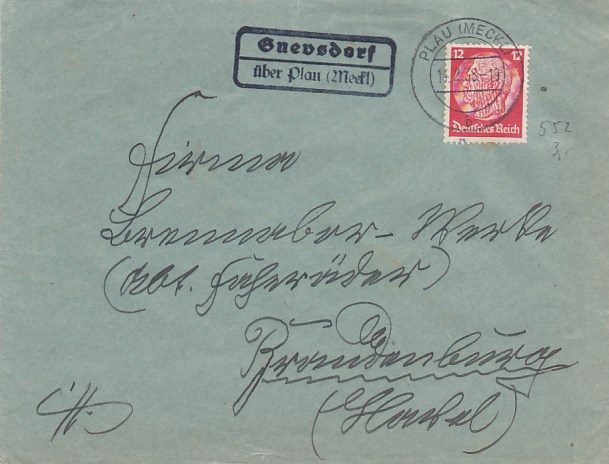 Gnevsdorf
über Plau (Meckl)
PLAU (MECKL)
12 12
Deutsches Reich
552
3,-
Firma
Brennabor-Werke
(Abt. Fahrräder)
Brandenburg
(Havel)